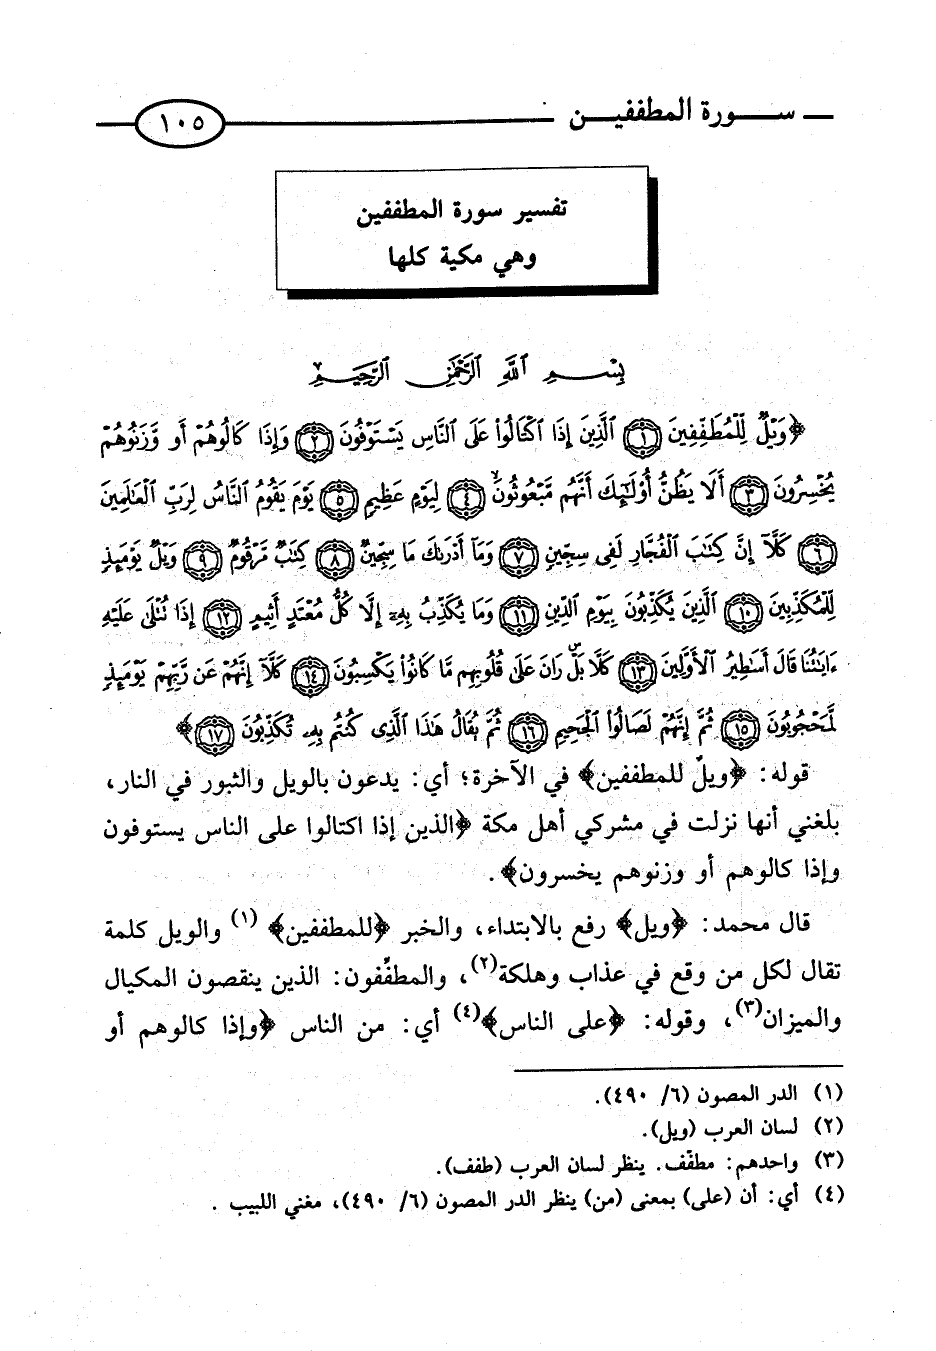 سورة المطففين ١٠٥
تفسير سورة المطففين
وهي مكية كلها
بِسْمِ ٱللَّهِ ٱلرَّحْمَٰنِ ٱلرَّحِيمِ
﴿وَيْلٌ لِّلْمُطَفِّفِينَ ١ ٱلَّذِينَ إِذَا ٱكْتَالُوا۟ عَلَى ٱلنَّاسِ يَسْتَوْفُونَ ٢ وَإِذَا كَالُوهُمْ أَو وَّزَنُوهُمْ
يُخْسِرُونَ ٣ أَلَا يَظُنُّ أُو۟لَٰٓئِكَ أَنَّهُم مَّبْعُوثُونَ ٤ لِيَوْمٍ عَظِيمٍ ٥ يَوْمَ يَقُومُ ٱلنَّاسُ لِرَبِّ ٱلْعَٰلَمِينَ
٦ كَلَّآ إِنَّ كِتَٰبَ ٱلْفُجَّارِ لَفِى سِجِّينٍ ٧ وَمَآ أَدْرَىٰكَ مَا سِجِّينٌ ٨ كِتَٰبٌ مَّرْقُومٌ ٩ وَيْلٌ يَوْمَئِذٍ
لِّلْمُكَذِّبِينَ ١٠ ٱلَّذِينَ يُكَذِّبُونَ بِيَوْمِ ٱلدِّينِ ١١ وَمَا يُكَذِّبُ بِهِۦٓ إِلَّا كُلُّ مُعْتَدٍ أَثِيمٍ ١٢ إِذَا تُتْلَىٰ عَلَيْهِ
ءَايَٰتُنَا قَالَ أَسَٰطِيرُ ٱلْأَوَّلِينَ ١٣ كَلَّا بَلْ رَانَ عَلَىٰ قُلُوبِهِم مَّا كَانُوا۟ يَكْسِبُونَ ١٤ كَلَّآ إِنَّهُمْ عَن رَّبِّهِمْ يَوْمَئِذٍ
لَّمَحْجُوبُونَ ١٥ ثُمَّ إِنَّهُمْ لَصَالُوا۟ ٱلْجَحِيمِ ١٦ ثُمَّ يُقَالُ هَٰذَا ٱلَّذِى كُنتُم بِهِۦ تُكَذِّبُونَ ١٧﴾
قوله: ﴿ويلٌ للمطففين﴾ في الآخرة؛ أي: يدعون بالويل والثبور في النار،
بلغني أنها نزلت في مشركي أهل مكة ﴿الذين إذا اكتالوا على الناس يستوفون
وإذا كالوهم أو وزنوهم يخسرون﴾.
قال محمد: ﴿ويل﴾ رفع بالابتداء، والخبر ﴿للمطففين﴾ (١) والويل كلمة
تقال لكل من وقع في عذاب وهلكة(٢)، والمطفِّفون: الذين ينقصون المكيال
والميزان(٣)، وقوله: ﴿على الناس﴾(٤) أي: من الناس ﴿وإذا كالوهم أو
(١) الدر المصون (٦/ ٤٩٠).
(٢) لسان العرب (ويل).
(٣) واحدهم: مطفّف. ينظر لسان العرب (طفف).
(٤) أي: أن (على) بمعنى (من) ينظر الدر المصون (٦/ ٤٩٠)، مغني اللبيب .